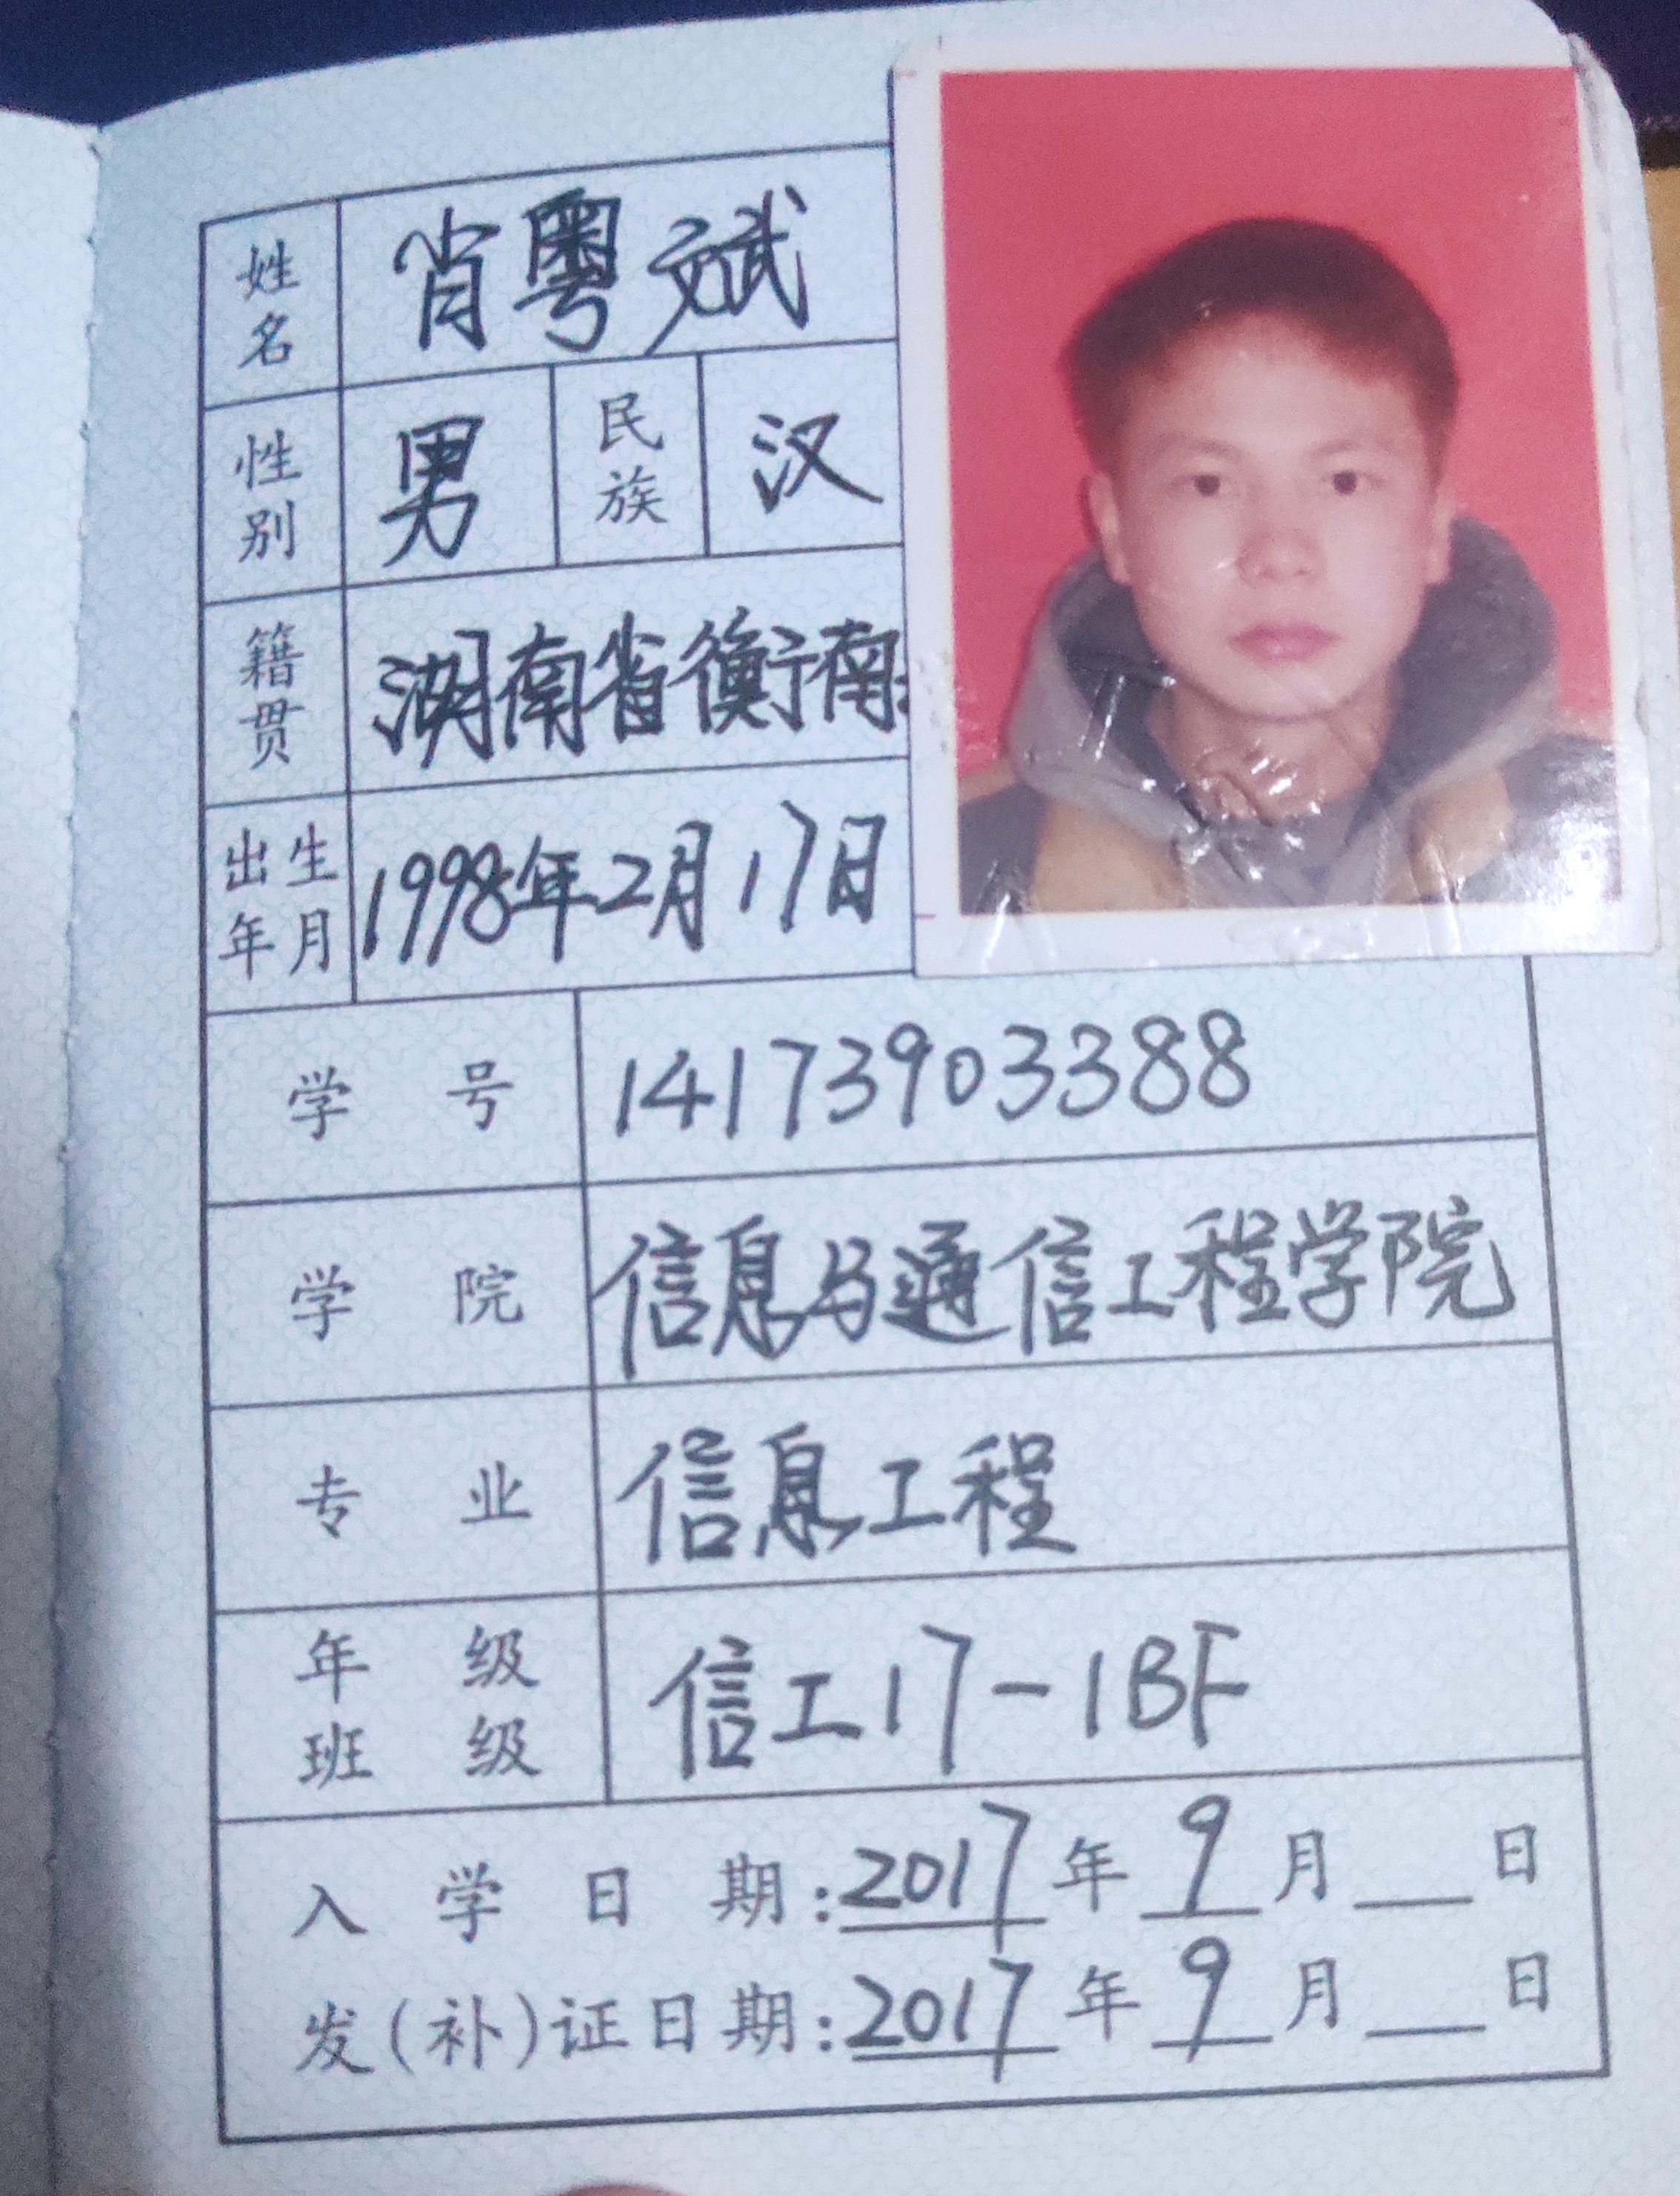 姓名 肖粤斌
性别 男 民族 汉
籍贯 湖南省衡南
出生年月 1998年2月17日
学号 14173903388
学院 信息与通信工程学院
专业 信息工程
年级班级 信工17-1BF
入学日期:2017年9月__日
发(补)证日期:2017年9月__日